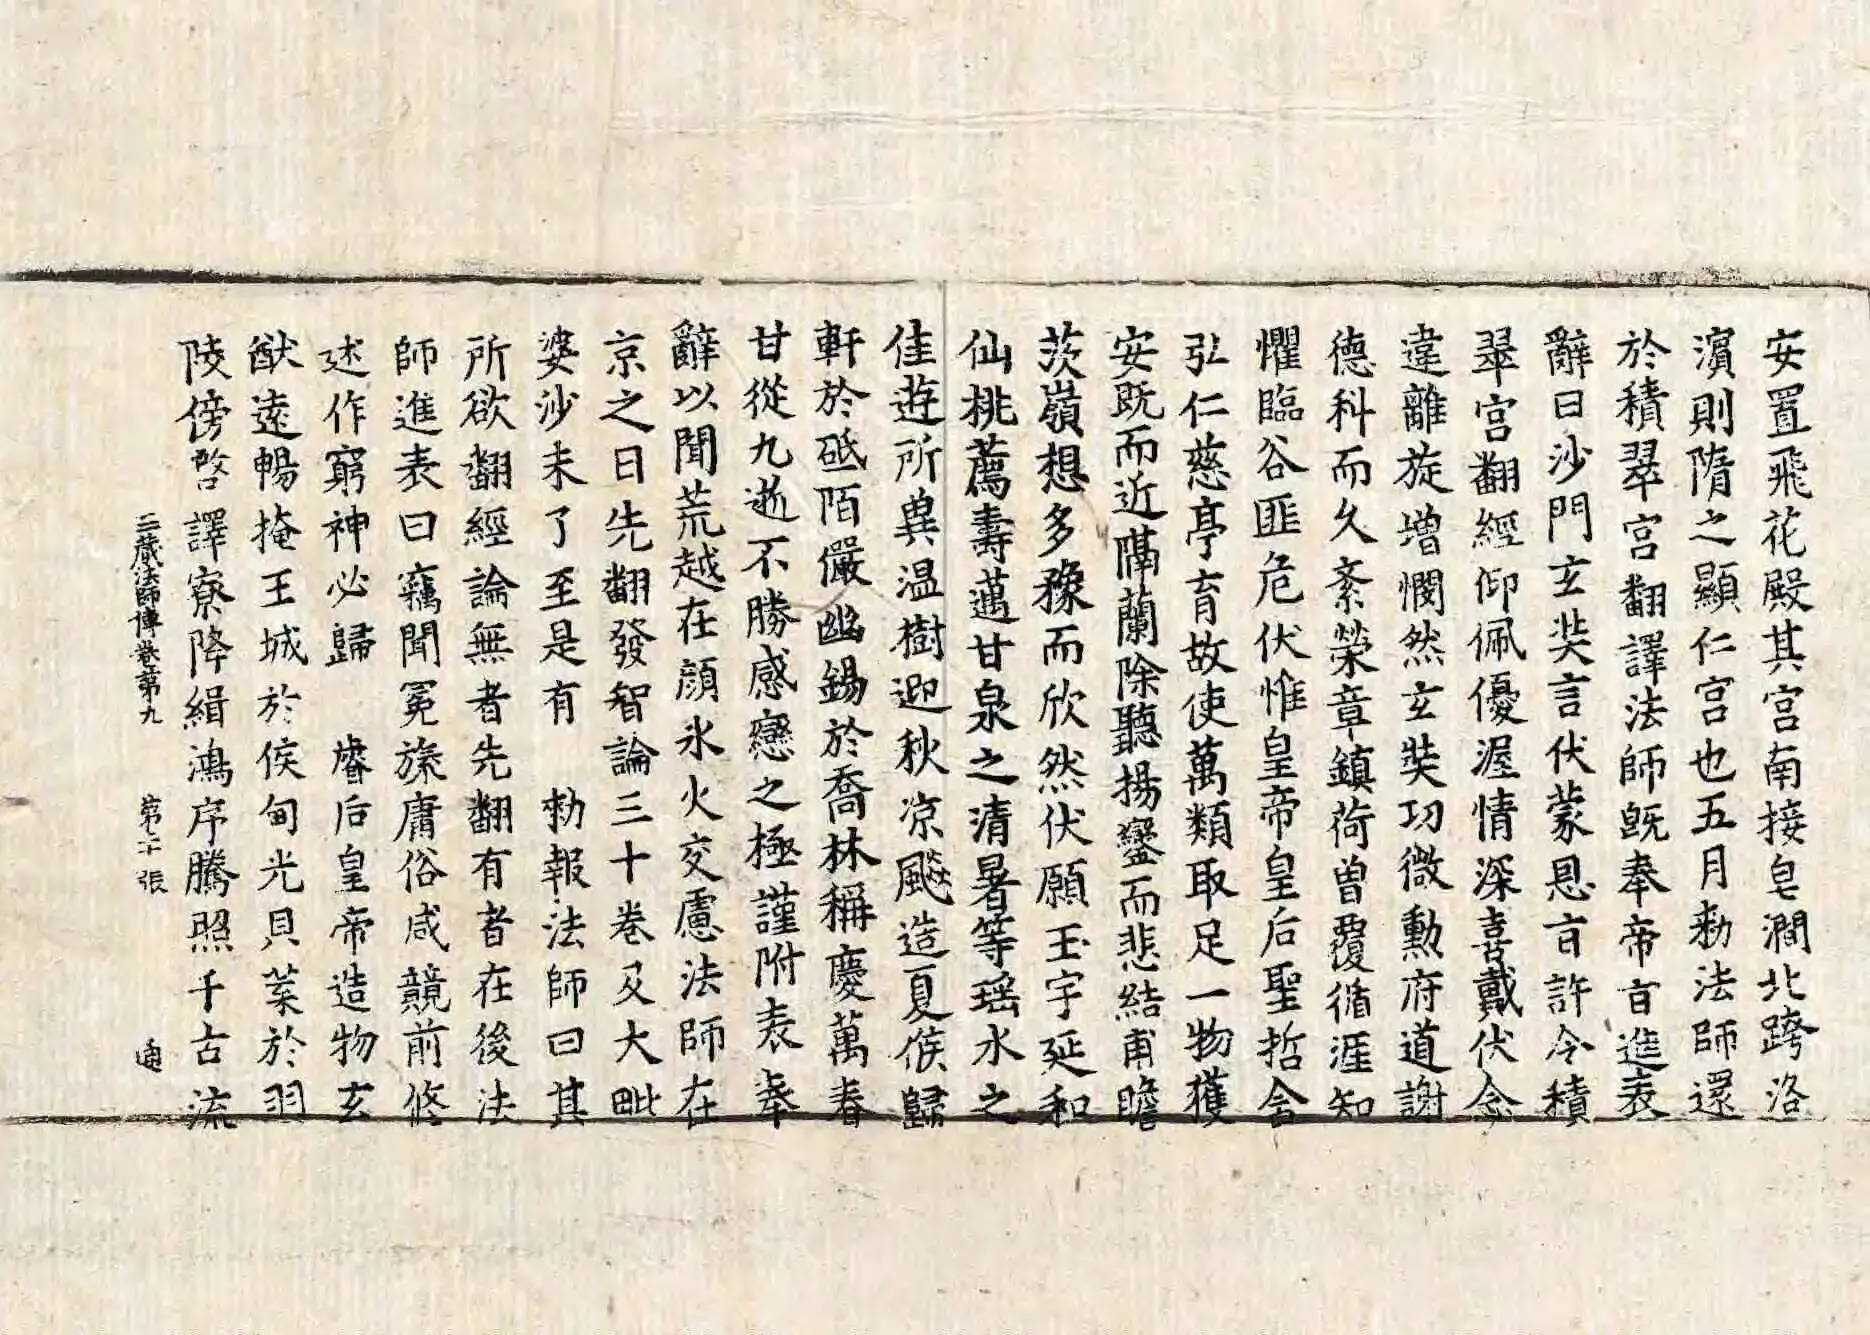 安置飛花殿其宮南接皂澗北跨洛
濵則隋之顯仁宮也五月勑法師還
於積翠宮翻譯法師旣奉帝㫖進表
辭曰沙門玄奘言伏蒙恩㫖許令積
翠宮翻經仰佩優渥情深喜戴伏念
違離旋增憫然玄奘功微勳府道謝
德科而久紊榮章鎮荷曾覆循涯知
懼臨谷匪危伏惟皇帝皇后聖哲含
弘仁慈亭育故使萬類取足一物獲
安旣而近隔蘭除聽揚鑾而悲結甫瞻
茨嶺想多豫而欣然伏願玉宇延和
仙桃薦壽邁甘泉之清暑等瑤水之
佳遊所冀溫樹迎秋凉飈造夏候歸
軒於砥陌儼幽錫於喬林稱慶萬春
甘從九逝不勝感戀之極謹附表奉
辭以聞荒越在顔氷火交慮法師在
京之日先翻發智論三十卷及大毗
婆沙未了至是有 勑報法師曰其
所欲翻經論無者先翻有者在後法
師進表曰竊聞冕旒庸俗咸競前修
述作窮神必歸 睿后皇帝造物玄
猷遠暢掩王城於侯甸光貝葉於羽
陵傍啓譯寮降緝鴻序騰照千古流
三藏法師傳卷第九 第二十張 通